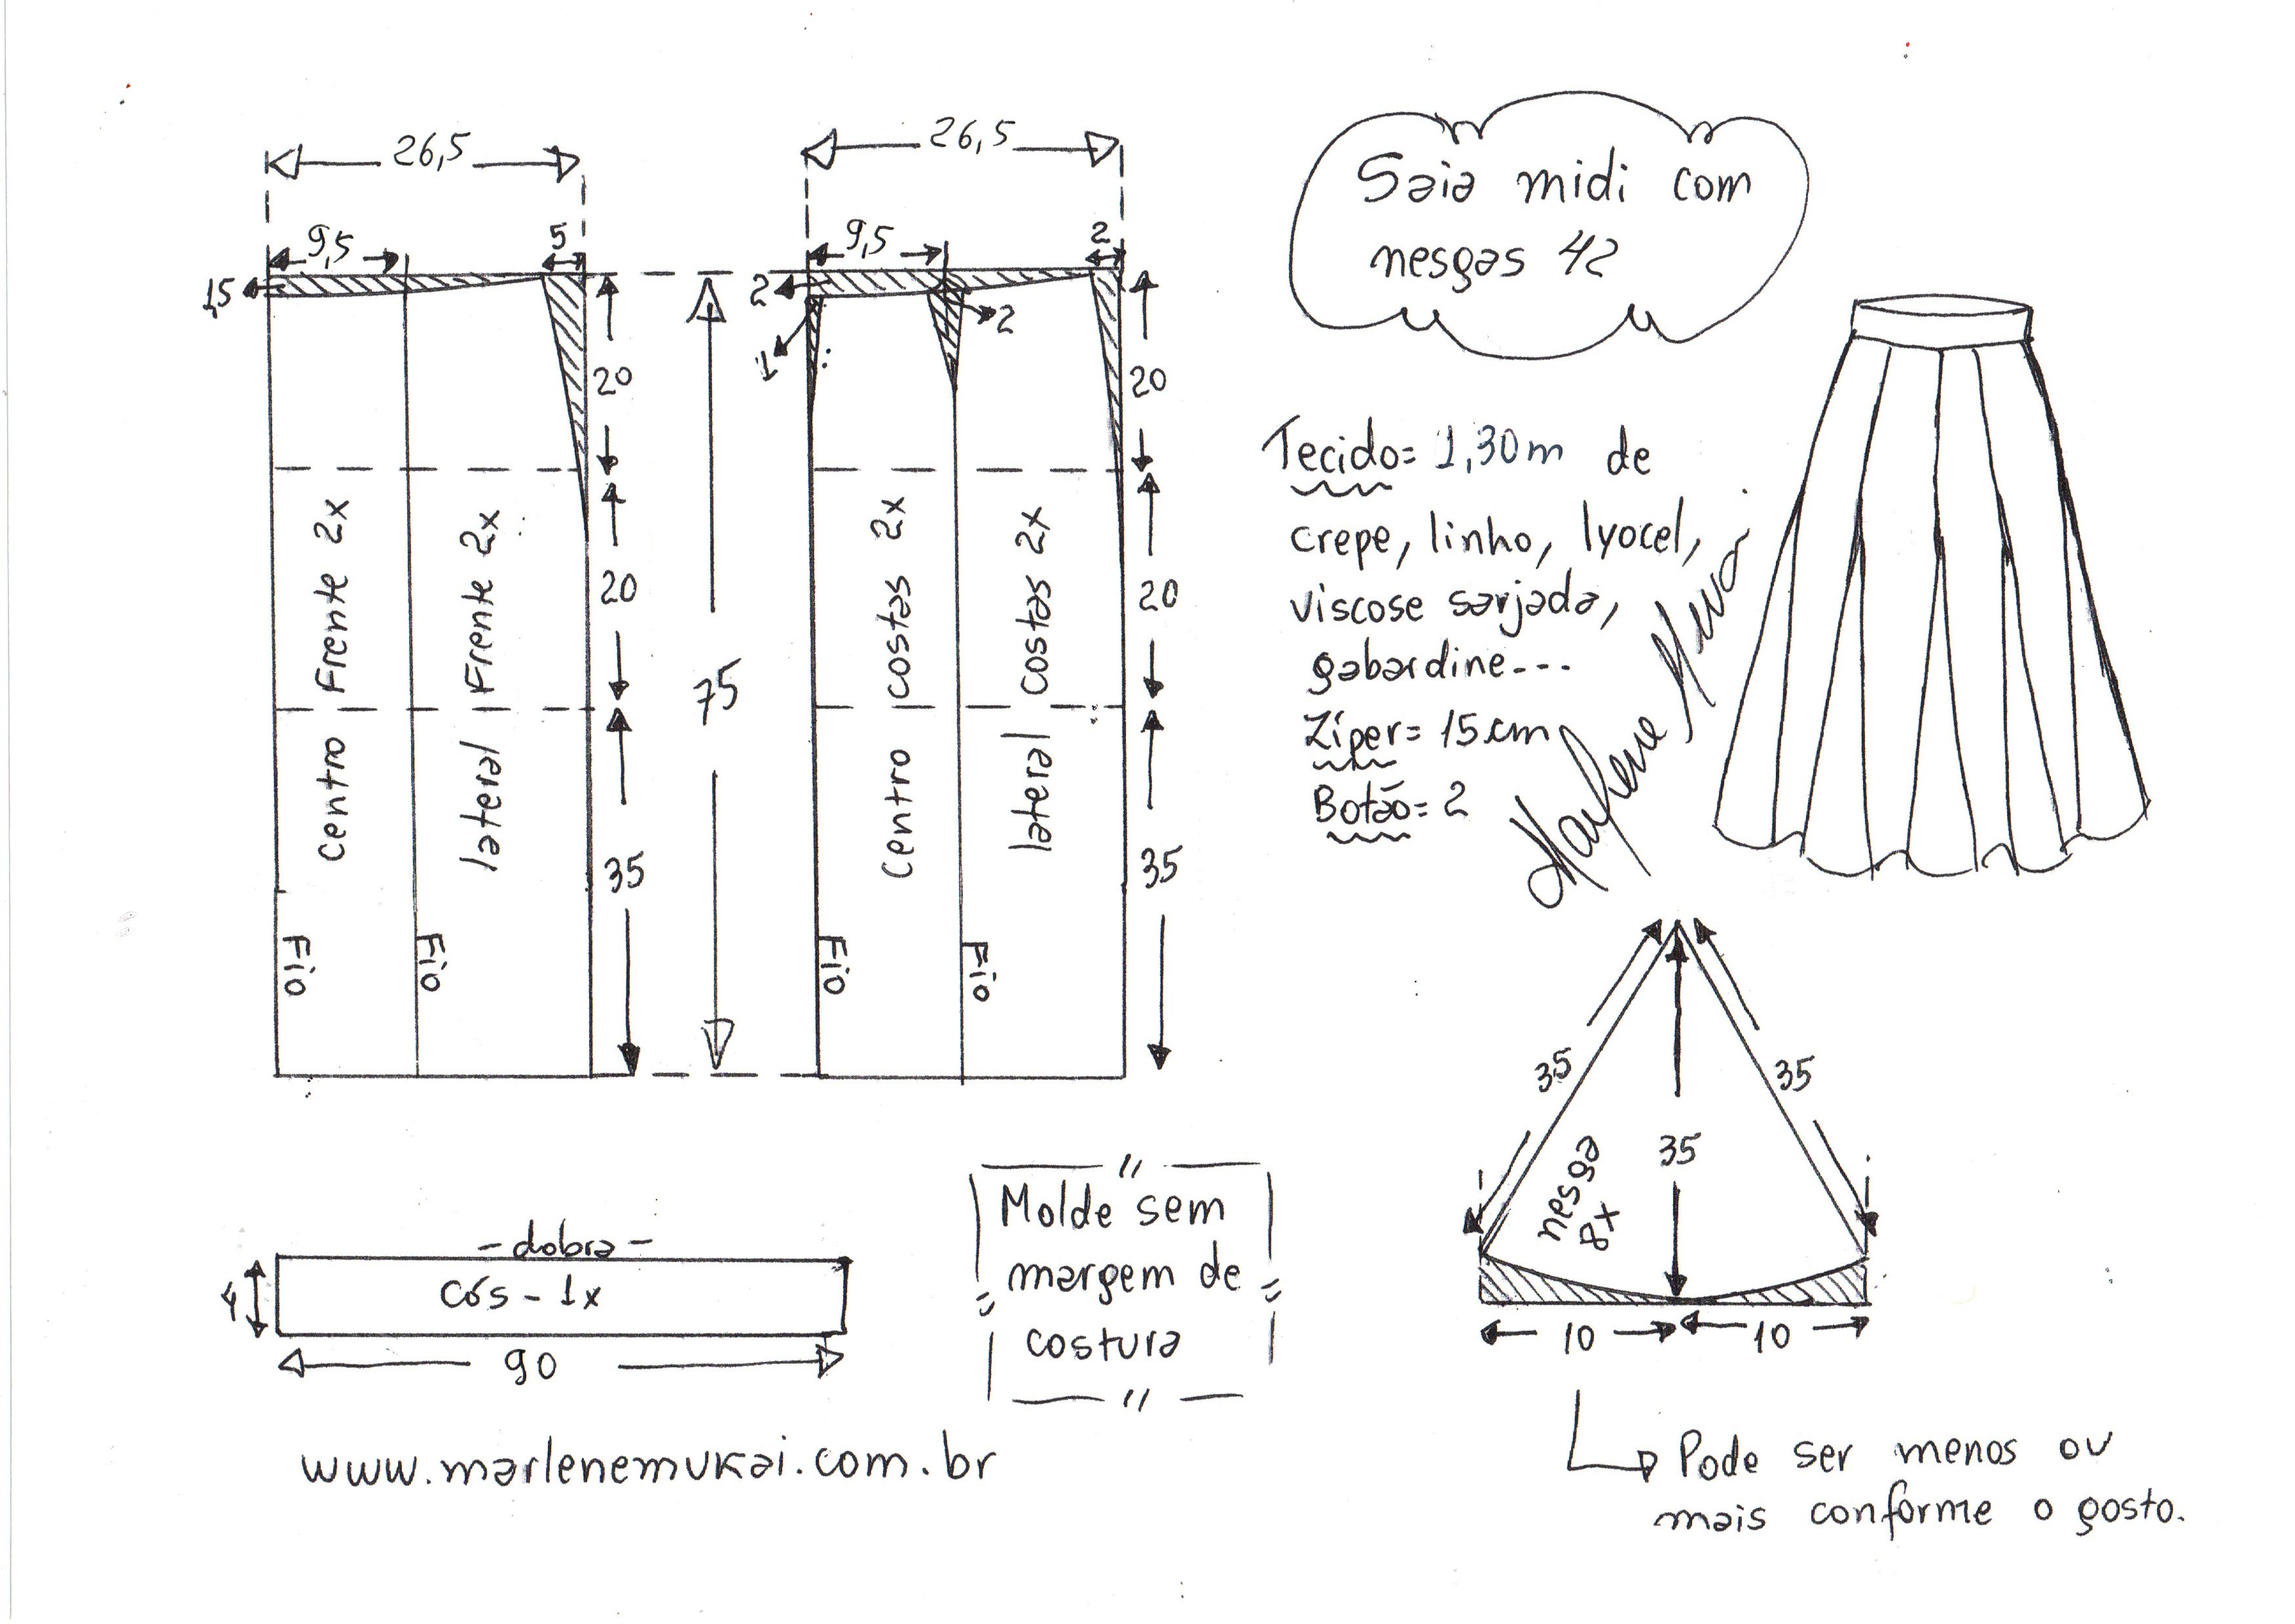 26,5
26,5
9,5
5
9,5
2
1,5
2
2
1
20
20
20
20
35
35
75
Centro Frente 2x
lateral Frente 2x
Centro costas 2x
lateral costas 2x
Fio
Fio
Fio
Fio
Saia midi com
nesgas 42
Tecido= 1,30m de
crepe, linho, lyocel,
viscose sarjada,
gabardine---
Zíper= 15cm
Botão= 2
Marlene Mukai
35
35
35
nesga
8x
10
10
Pode ser menos ou
mais conforme o gosto.
- dobra -
cós - 1x
4
90
Molde sem
margem de
costura
www.marlenemukai.com.br